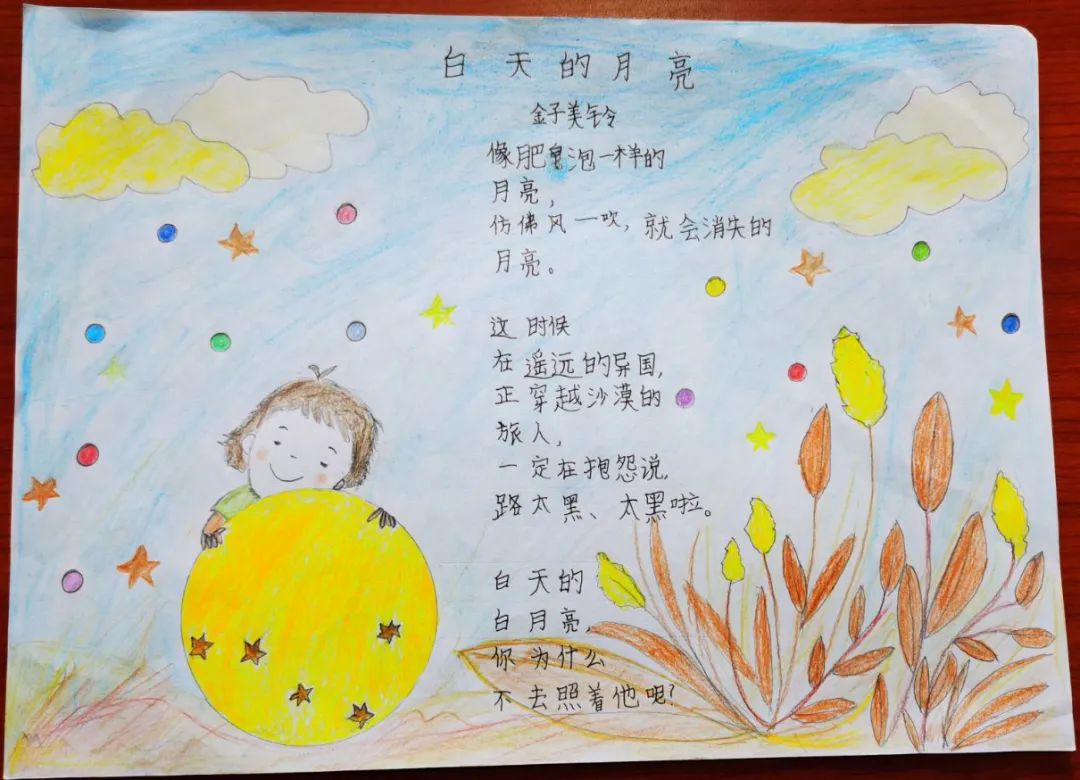 白天的月亮
金子美铃
像肥皂泡一样的
月亮，
仿佛风一吹，就会消失的
月亮。
这时候
在遥远的异国，
正穿越沙漠的
旅人，
一定在抱怨说，
路太黑、太黑啦。
白天的
白月亮，
你为什么
不去照着他呢？